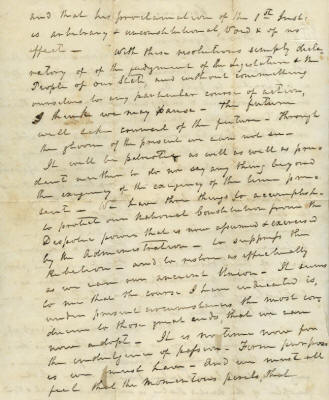 and that his proclamation of the 1st Inst:
is arbitrary & unconstitutional, Void & of no
effect — With these resolutions simply decla
ratory of of the judgment of the Legislature & the
People of our State and without committing
ourselves to any particular course of action,
I think we may pause — The future
will take counsel of the future — Through
the gloom of the present we can not see —
It will be patriotic as well as well as pru
dent neither to do nor say any thing beyond
the exigency of the exigency of the time pre
sent — We have three things to accomplish —
to protect our National Constitution from the
Despotic power that is now assumed & exercised
by the Administration — to suppress the
Rebellion — and to restore as effectually
as we can our ancient Union — It seems
to me that the course I have indicated is,
under present circumstances the most con
ducive to those great ends, that we can
now adopt — It is no time now for
the indulgence of passion — Firm purposes
is we must have — And we must all
feel that the momentous perils, that